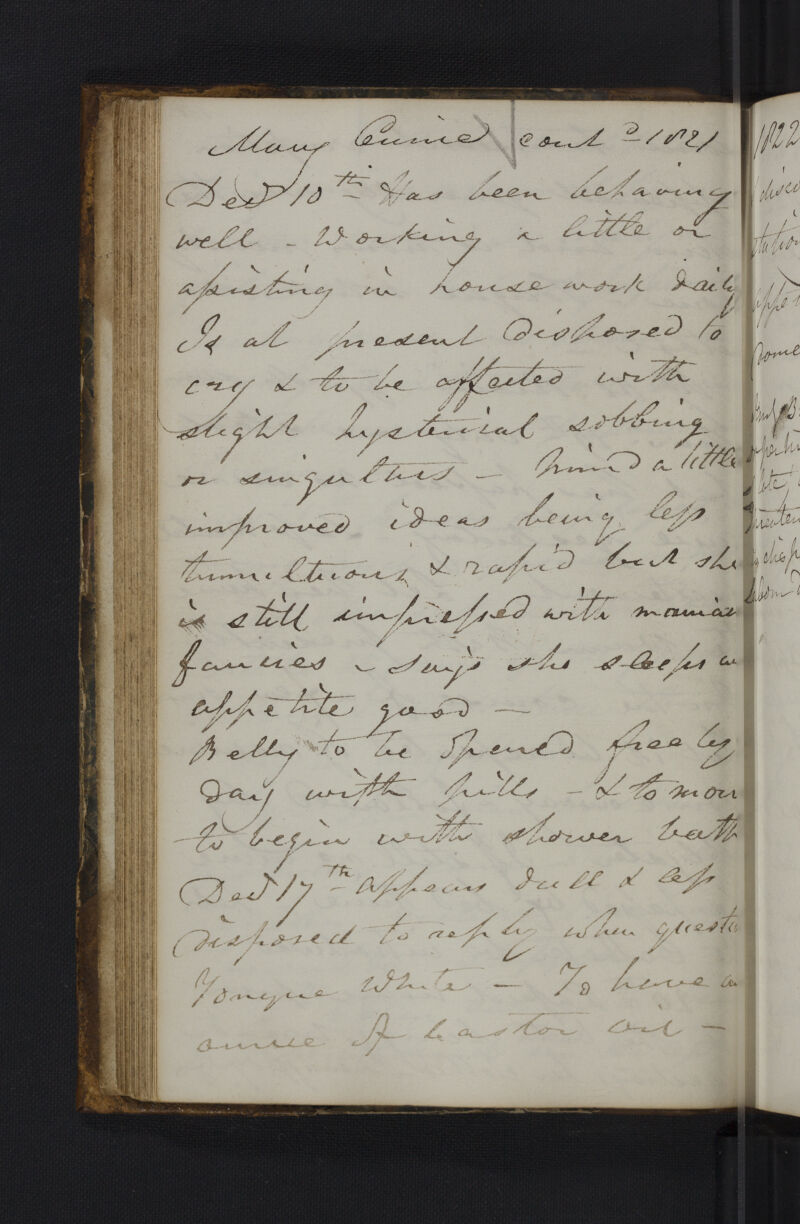 Mary cont d 1821
Decr 10th Has been behaving
well - Working a little or
assisting in house work daily
Is at present disposed to
cry & to be affected with
slight hysterical sobbing
or singultus - mind a little
improved ideas being less
tumultuous & rapid but she
is still impressed with
fancies - says she sleeps
appetite good -
Belly to be opened free by
day with pills - & to morr
to begin with shower bath
Decr 17th appears dull & less
disposed to reply when
Tongue white - To have
ounce of Castor oil -
1822